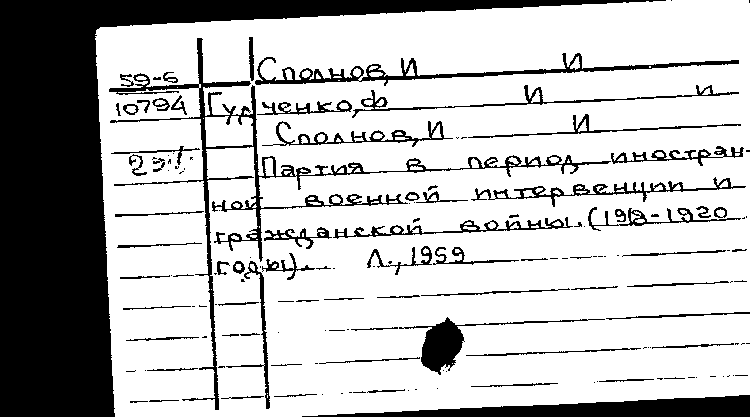 59-5 Сполнов, И И
10794 Гурченко, Ф И и
Сполнов, И И
Партия в период иностран-
ной военной интервенции и
гражданской войны. (1918-1920
годы). Л., 1959